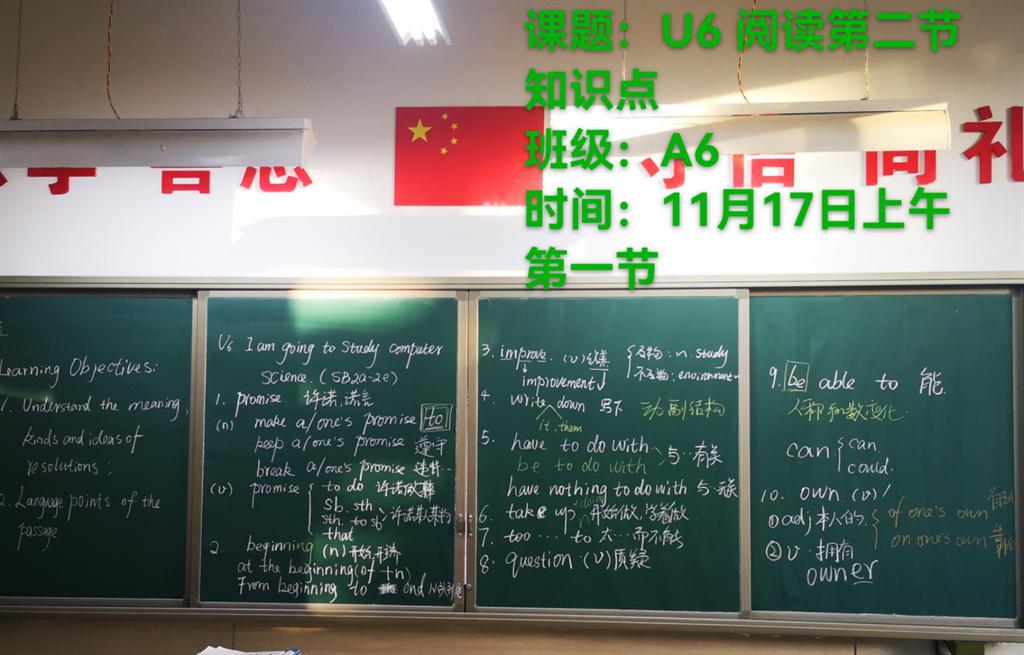 课题：U6 阅读第二节
知识点
班级：A6
时间：11月17日上午
第一节
学 善思
礼
Learning Objectives:
1. Understand the meaning,
kinds and ideas of
resolutions;
2. Language points of the
passage
U6 I am going to study computer
science. (SB2a-2e)
1. promise 许诺,诺言
(n) make a/one's promise to
keep a/one's promise 遵守
break a/one's promise 违背…
(v) promise { to do 许诺做事
sb. sth.
sth. to sb > 许诺某人某物
that
2. beginning (n) 开始,开端
at the beginning (of +n)
From beginning to end 从头到尾
3. improve. (v) { 及物: n. study
improvement 不及物: environment
4. write down 写下 动副结构
it, them
5. have to do with
be to do with > 与…有关
have nothing to do with 与…无关
6. take up +doing 开始做,学着做
7. too … to 太…而不能
8. question (v) 质疑
9. be able to 能
人称和数变化
can { can
could.
10. own. (v)
① adj 本人的. { of one's own
on one's own
② v. 拥有
owner